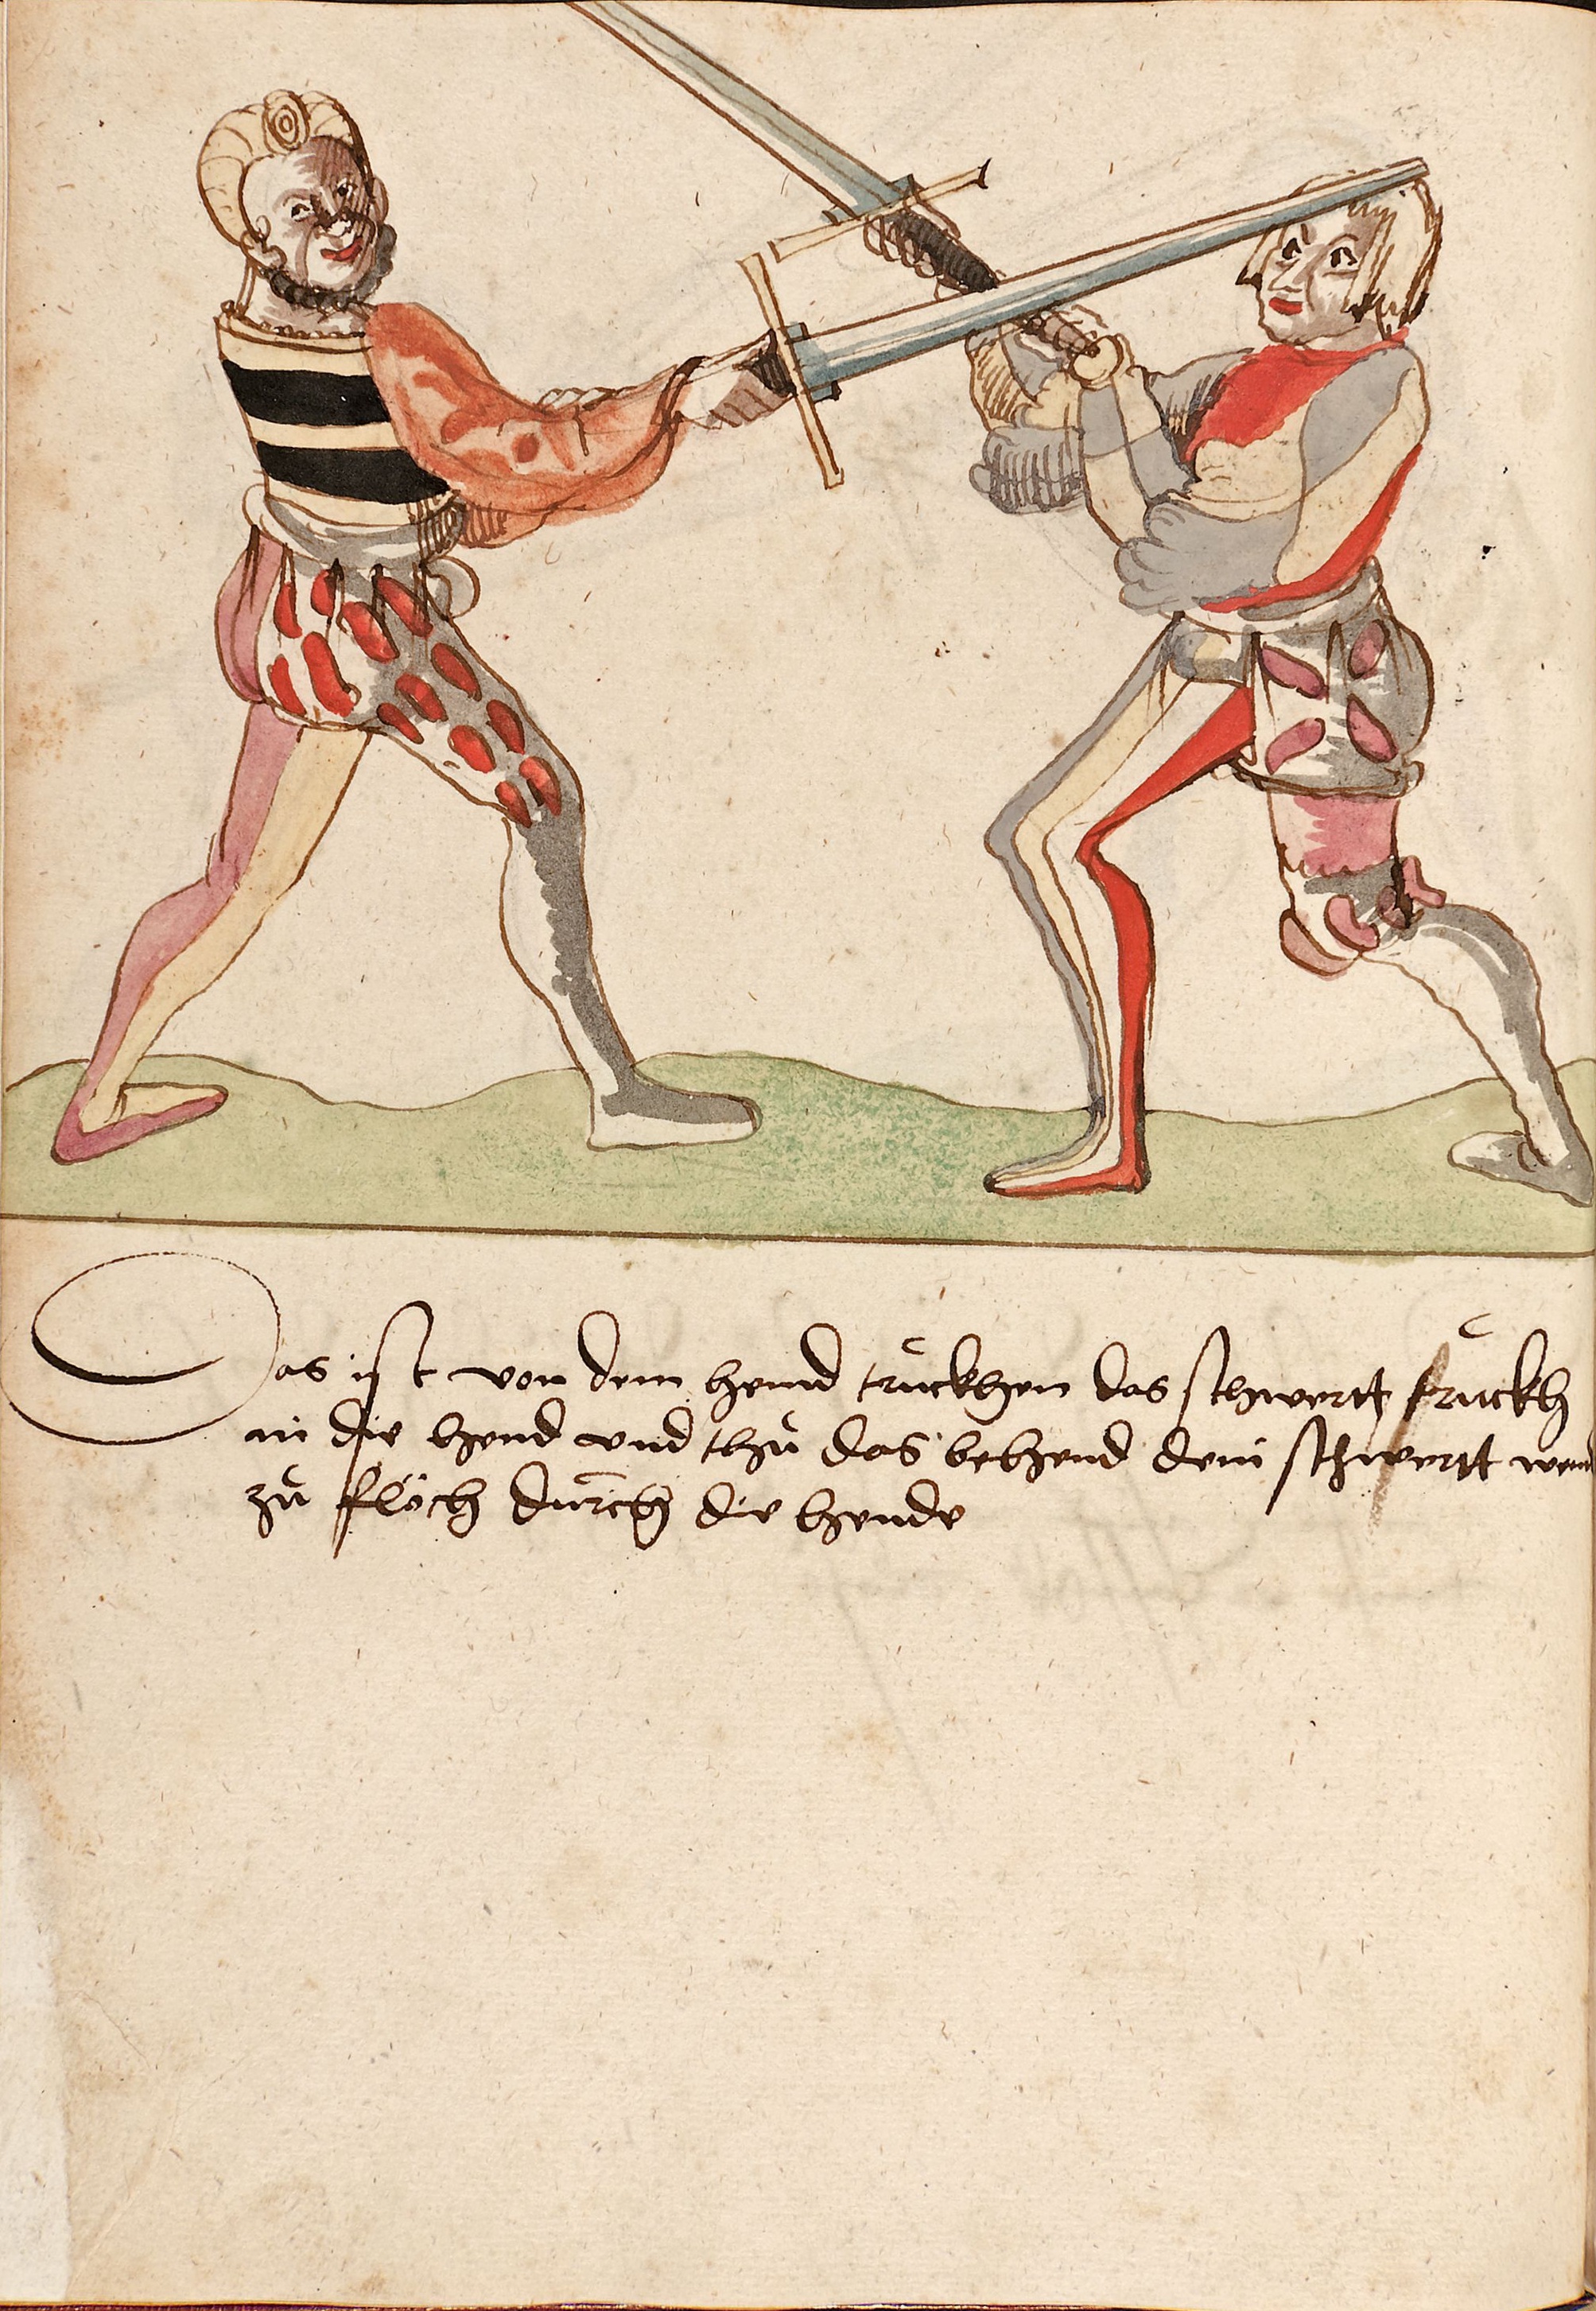 Das ist von dem hennd trückhen das schwertt trückh
in die hend vnd thů das behend dein schwertt wend
zů flöch durch die hende